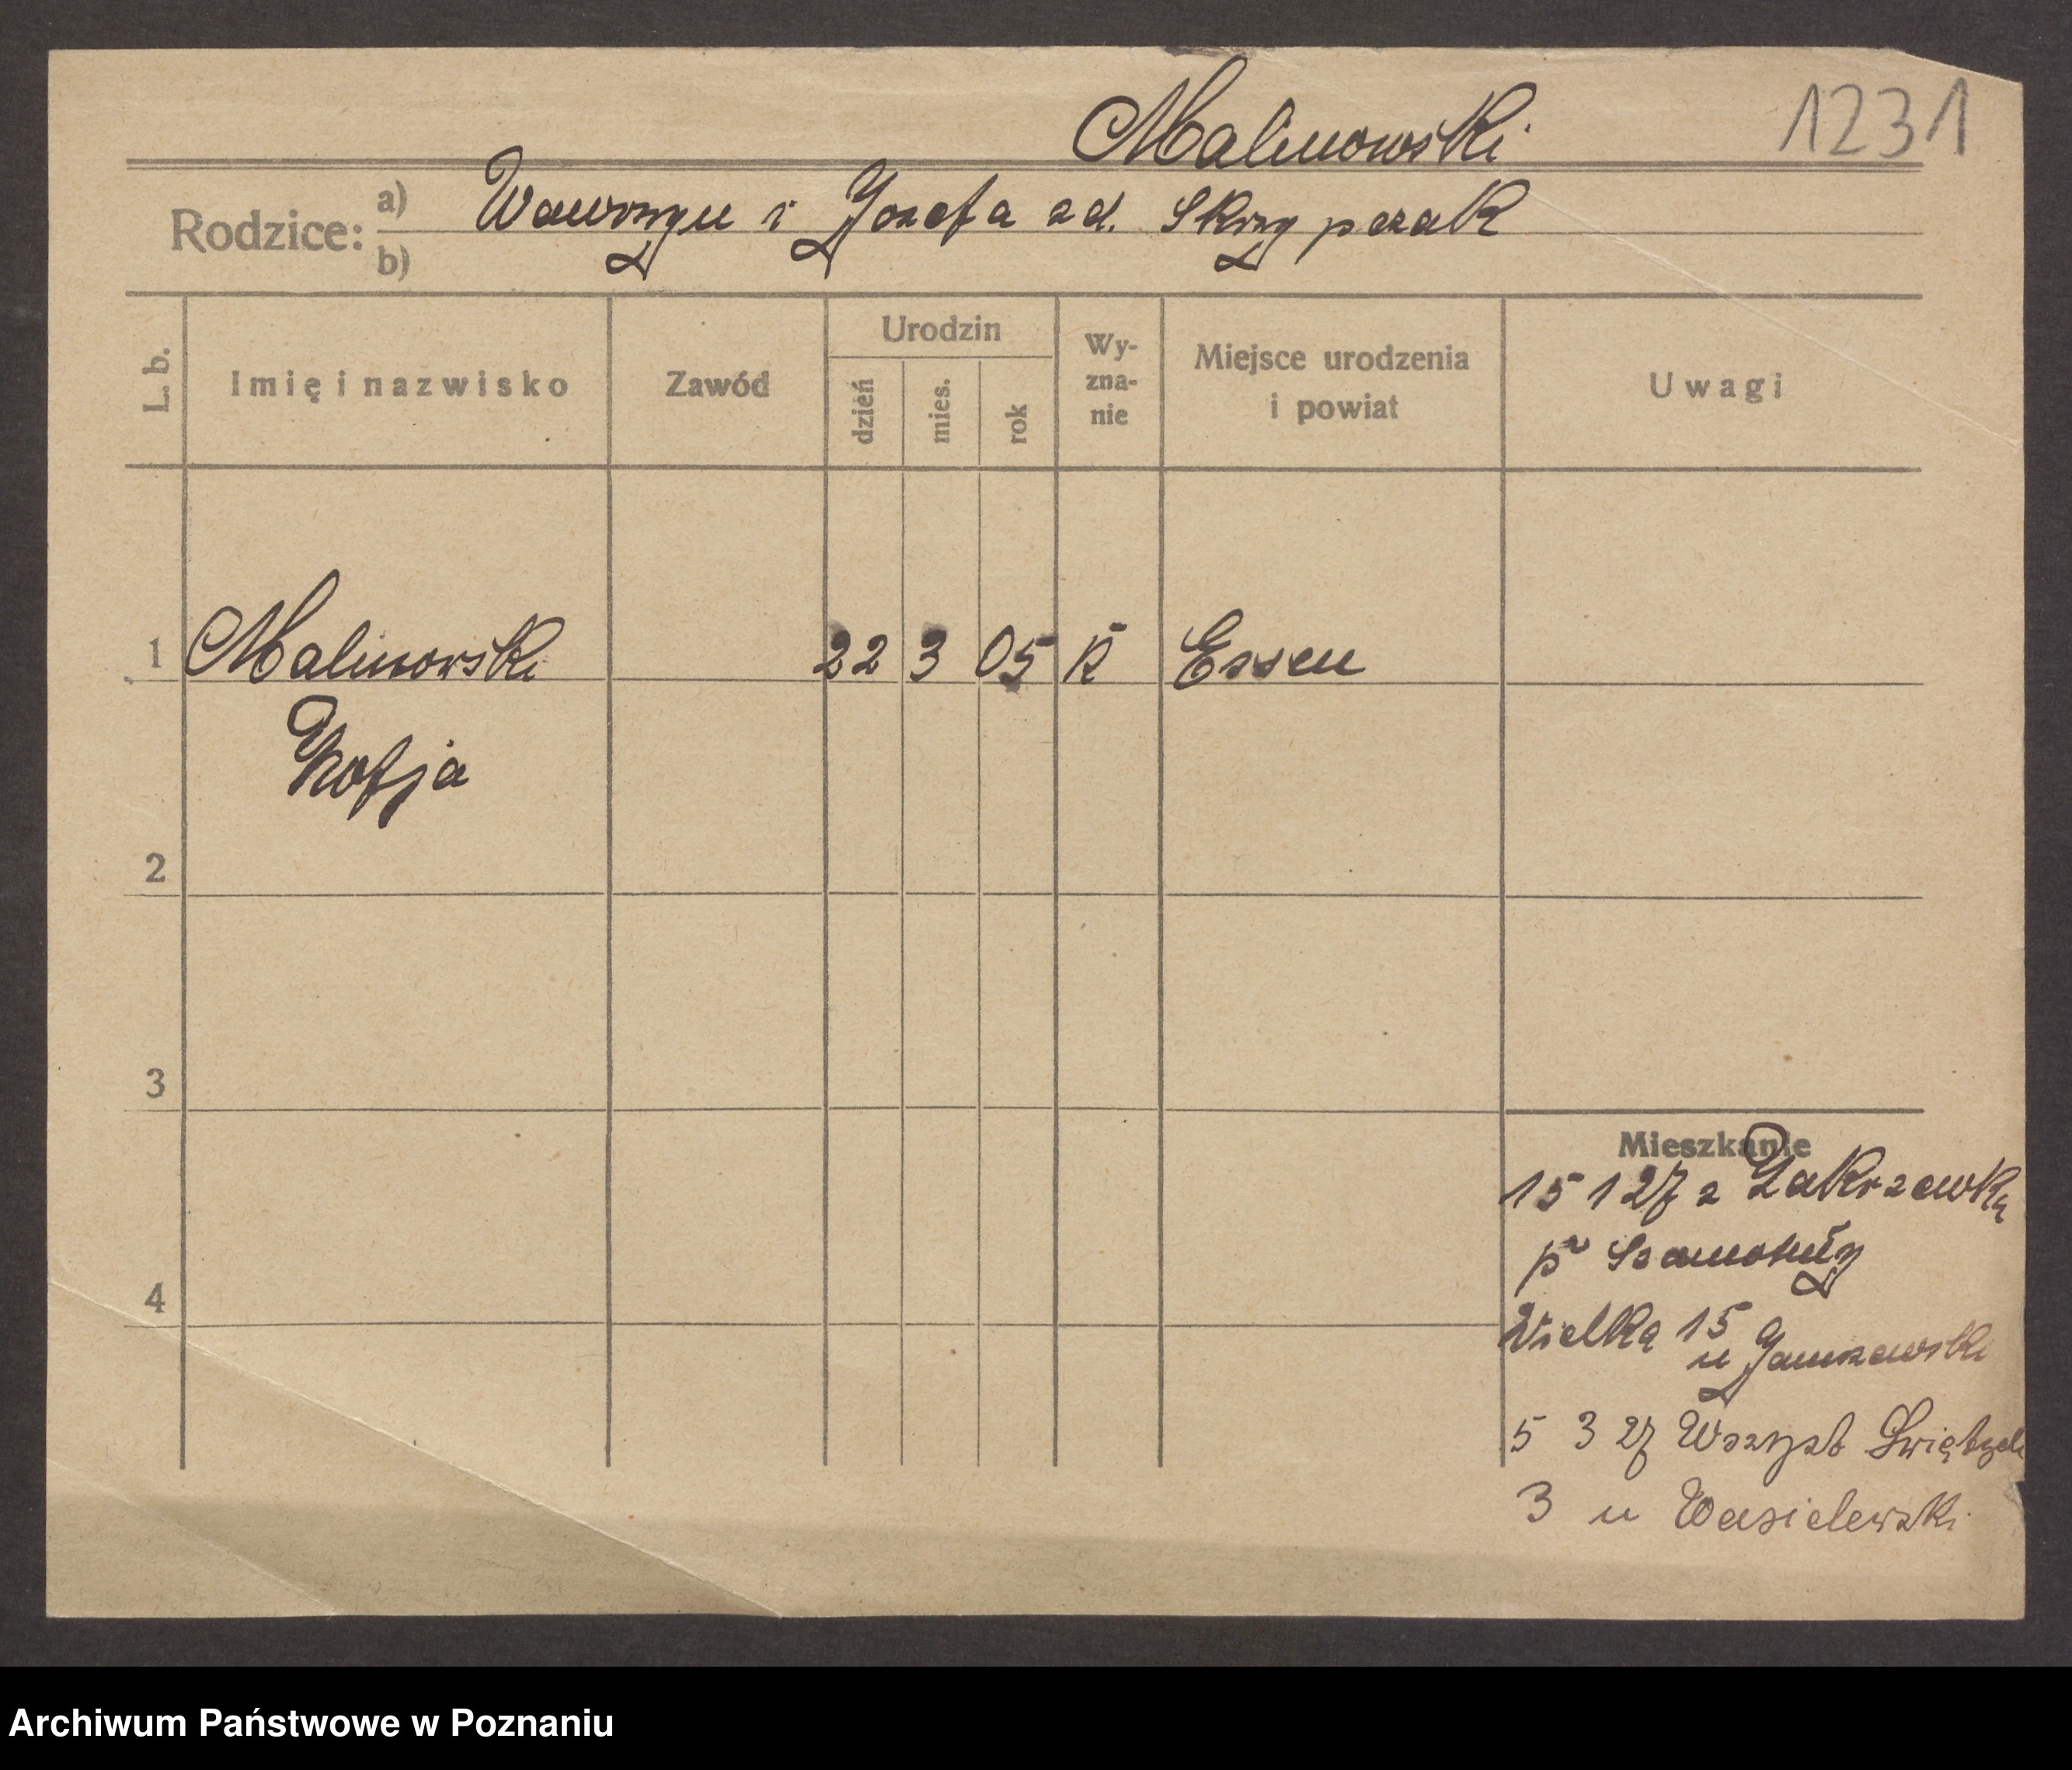 Malinowski 1231
Rodzice: a) Wawrzyn i Jozefa zd. Skrzypczak
b)
L. b. Imię i nazwisko Zawód Urodzin dzień mies. rok Wy-zna-nie Miejsce urodzenia i powiat Uwagi
1 Malinowski 22 3 05 K Essen
Zofja
2
3
Mieszkanie
15 1 27 z Zakrzewka
p Szamotuły
4
Wielka 15
u
5 3 27 Wszyst Świętych
3 u Wasielewski
Archiwum Państwowe w Poznaniu